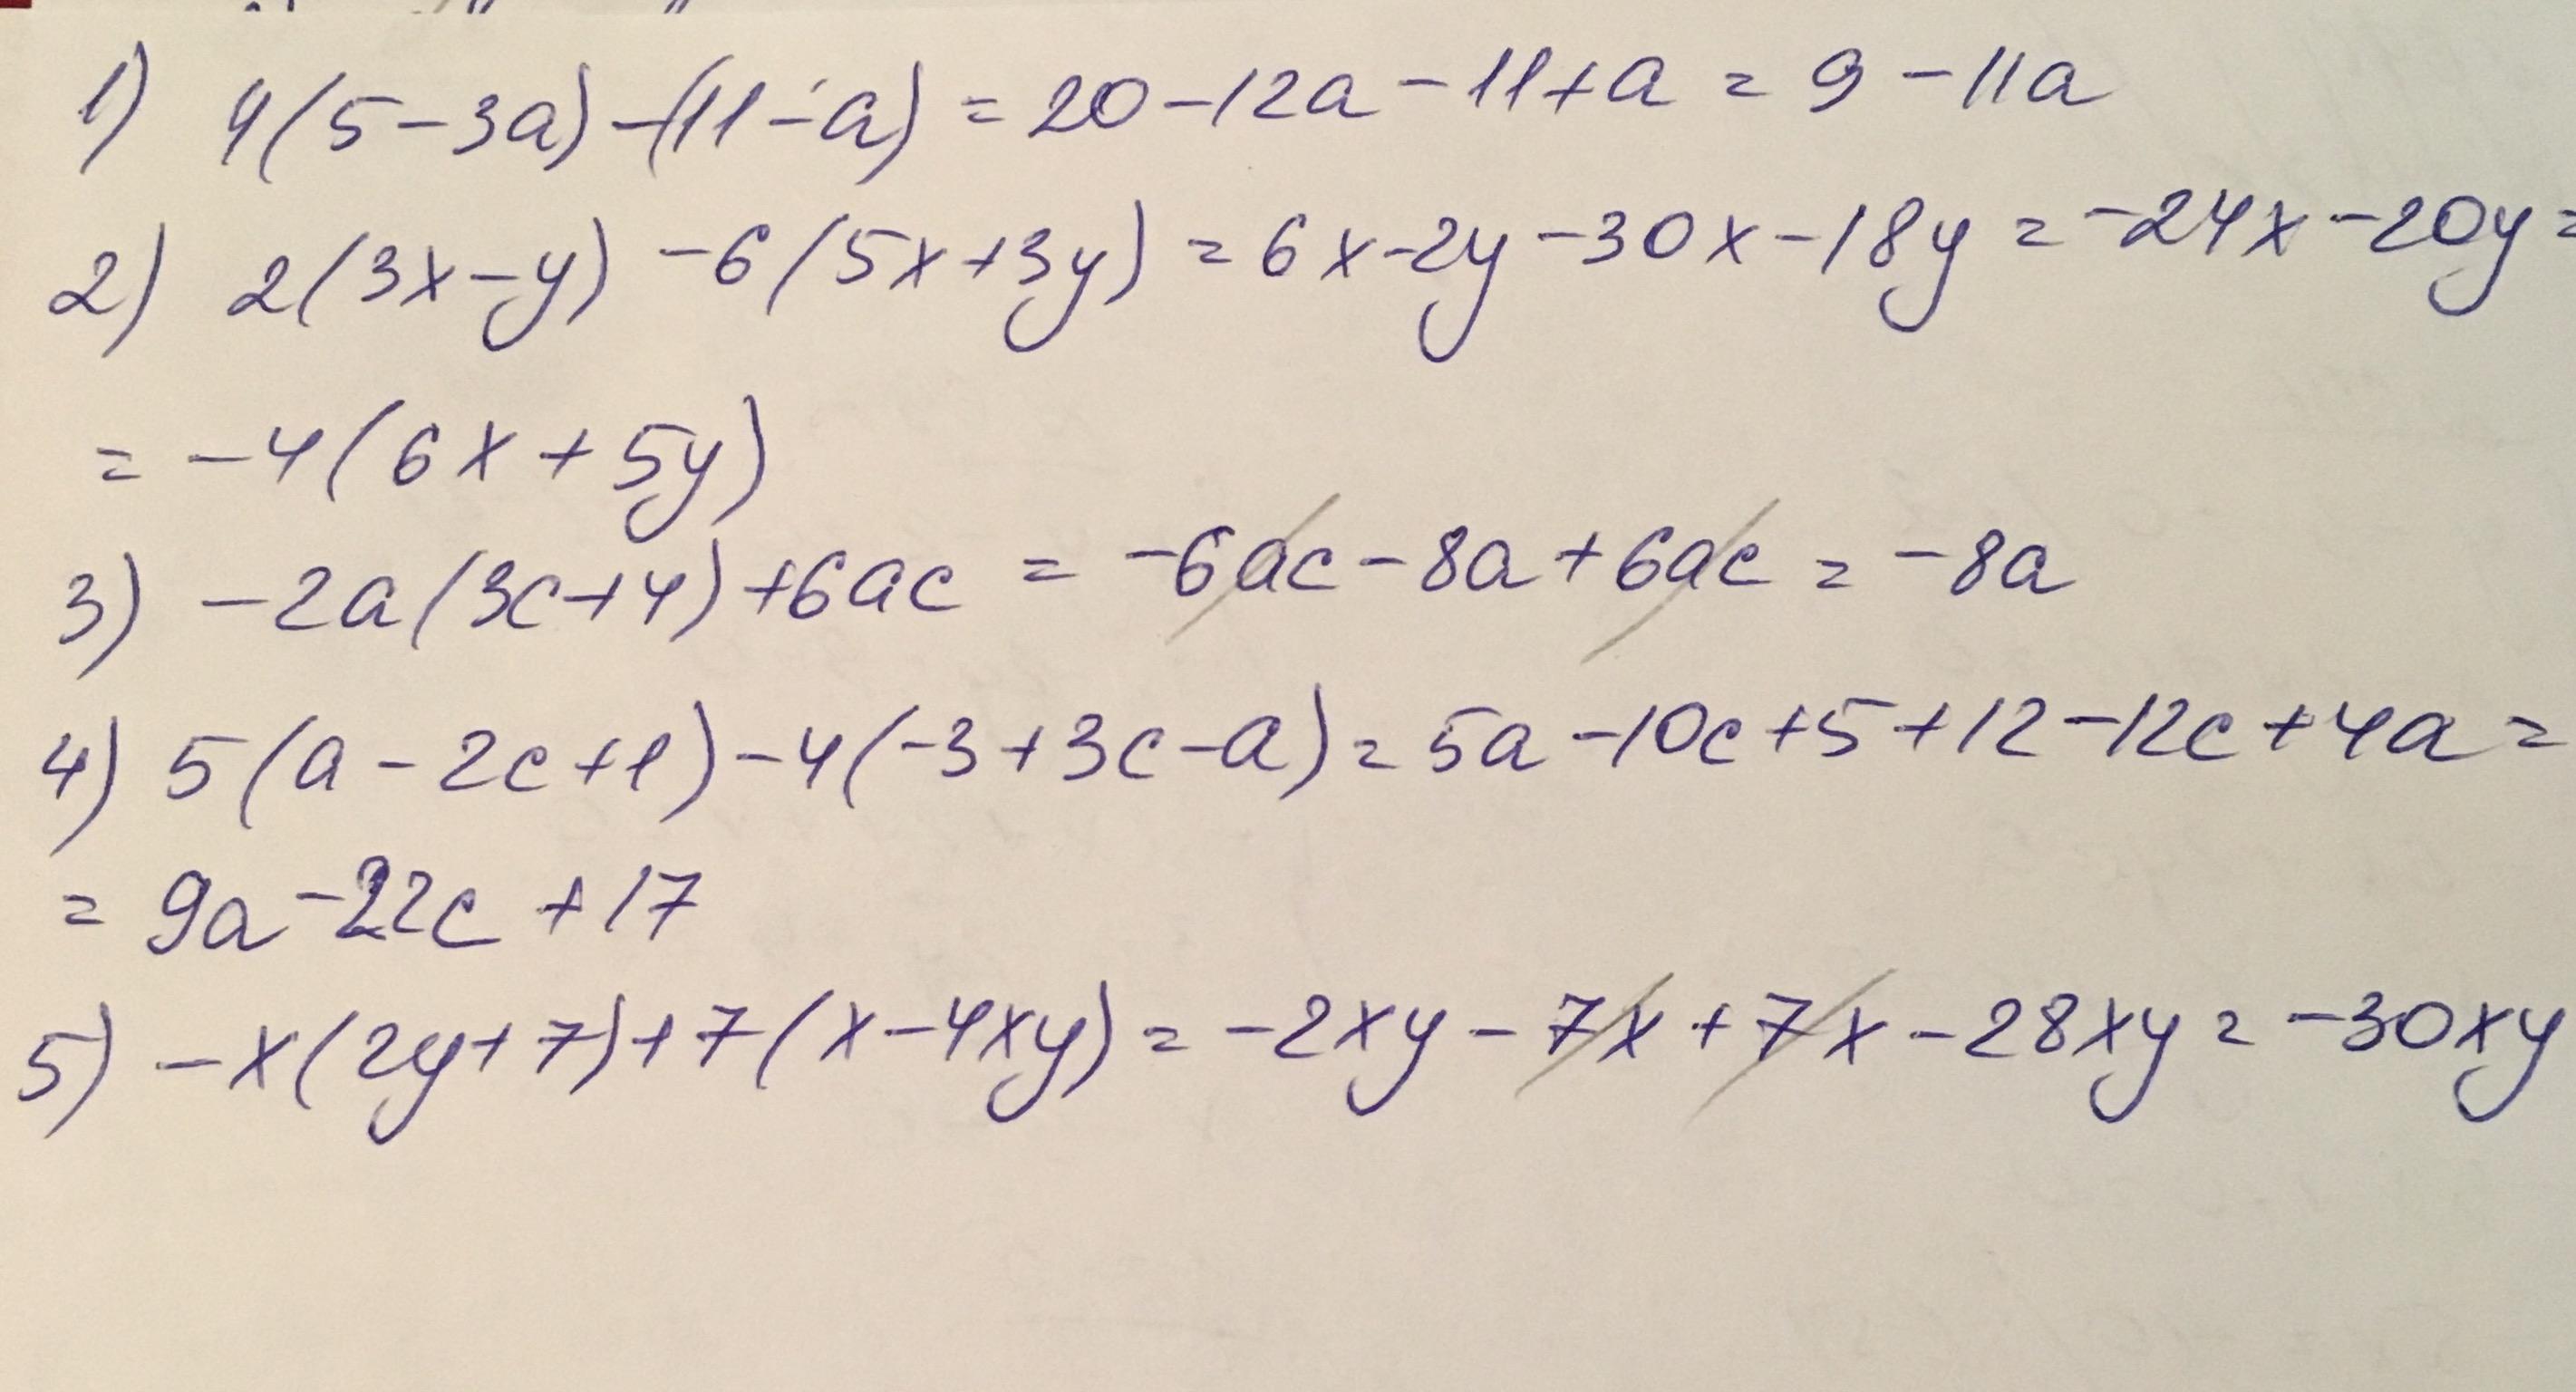 1) 4(5-3a)-(11-a) = 20-12a-11+a = 9-11a
2) 2(3x-y) -6(5x+3y) = 6x-2y-30x-18y = -24x-20y =
= -4(6x+5y)
3) -2a(3c+4)+6ac = -6ac-8a+6ac = -8a
4) 5(a-2c+1)-4(-3+3c-a) = 5a-10c+5+12-12c+4a =
= 9a-22c+17
5) -x(2y+7)+7(x-4xy) = -2xy-7x+7x-28xy = -30xy